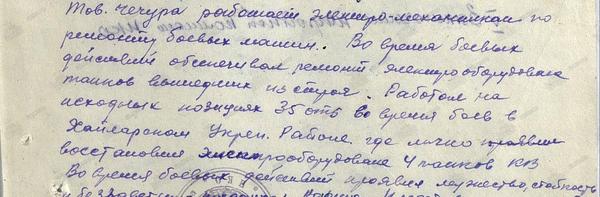 Тов. Чечура работает электро-механиком по
ремонту боевых машин. Во время боевых
действий обеспечивал ремонт электрооборудования
танков вышедших из строя. Работая на
исходных позициях 35 отб во время боев в
Хайларском Укреп. Районе где лично
восстановил электрооборудование 4 танков КВ
Во время боевых действий проявил мужество, стойкость
и беззаветную